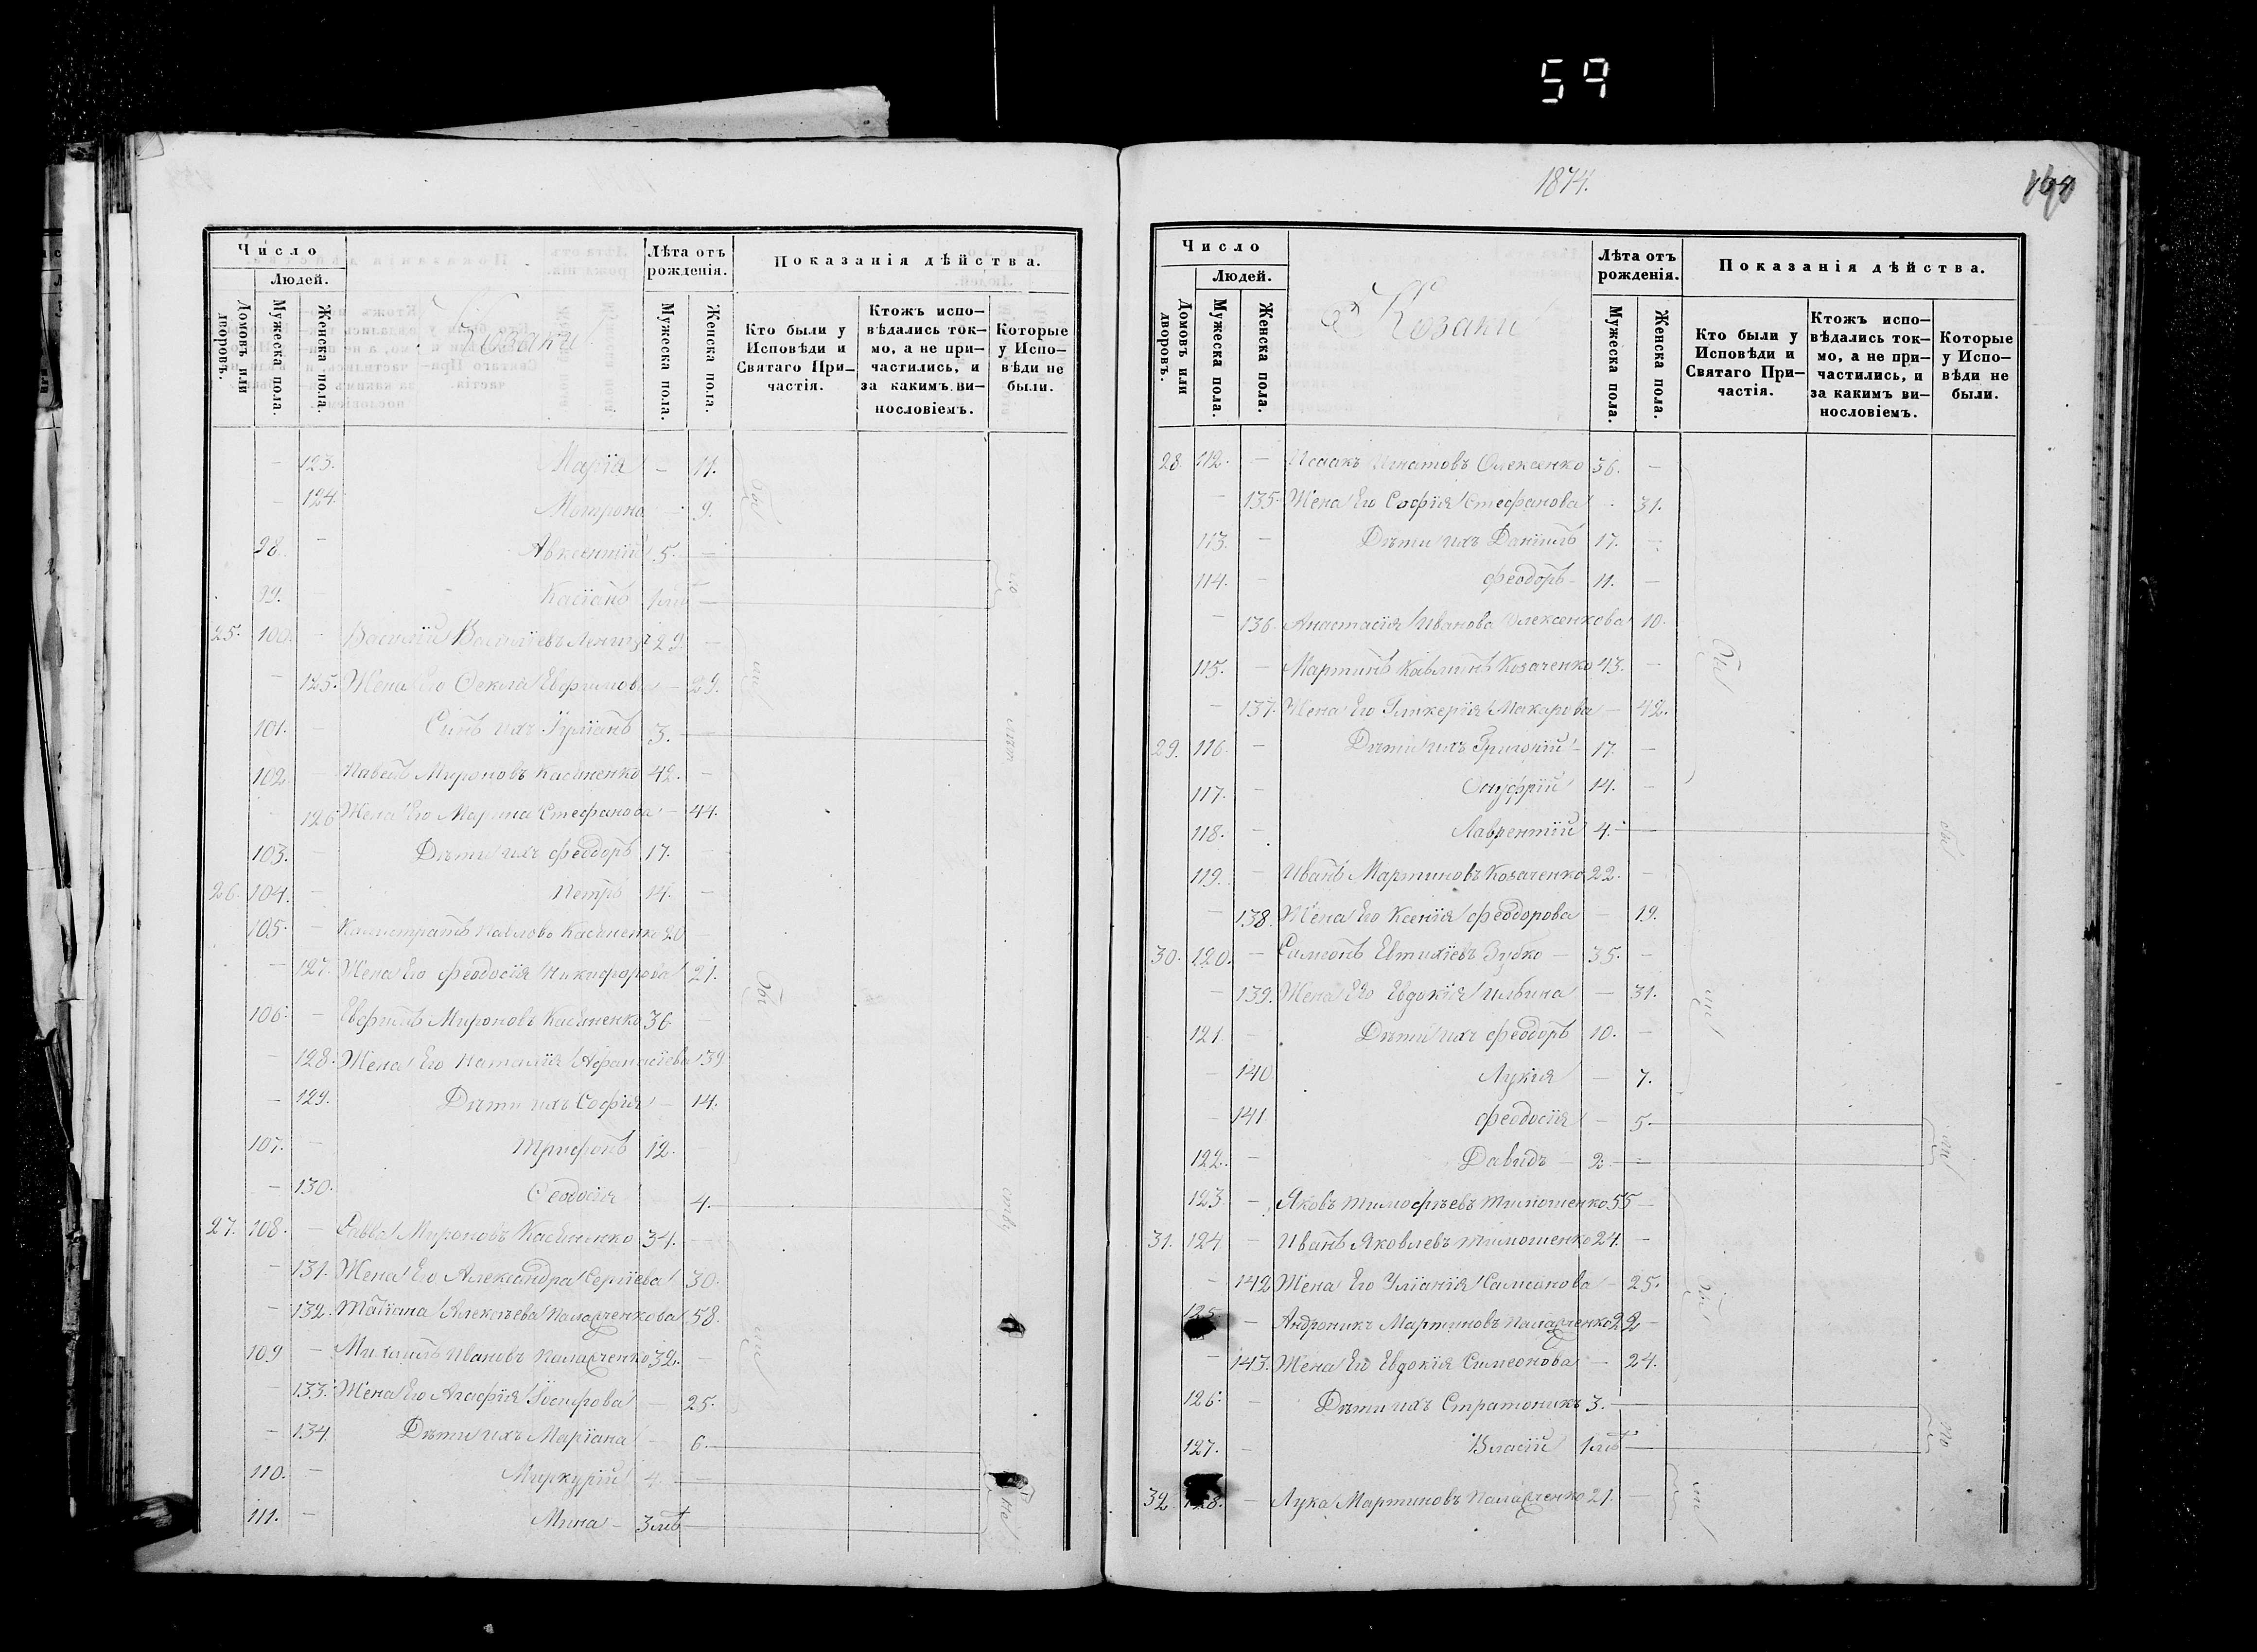 59
Число
Людей.
Домовъ или дворовъ.
Мужеска пола.
Женска пола.
Козаки
Лѣта отъ рожденія.
Мужеска пола.
Женска пола.
Показанія дѣйства.
Кто были у Исповѣди и Святаго Причастія.
Ктожъ исповѣдались токмо, а не причастились, и за какимъ винословіемъ.
Которые у Исповѣди не были.
— 123. Марія — 11.
— 124. Мотрона — 9.
98. — Авксентій 5. —
99. — Касіанъ —
25. 100. — Василій Василіевъ 29. —
— 125. Жена Его Ѳекла — 29.
101. — Сынъ ихъ Іуліанъ 3. —
102 Павелъ Мироновъ Касіненко 42. —
126 Жена Его Марина Стефанова — 44.
103. — Дѣти ихъ Феодоръ 17. —
26. 104. — Петръ 14. —
105. — Калистратъ Павлово Касіненко 20 —
— 127. Жена Его Феодосія Никифорова 21.
106. — Мироновъ Касіненко 36. —
— 128. Жена Его Наталія Афанасіева 39
— 129. Дѣти ихъ Софія — 14.
107. — Трифонъ 12. —
— 130. Ѳеодосія 4.
27. 108. — Савва Мироновъ Касіненко 34. —
— 131. Жена Его Александра Сергіева 30.
— 132. Татіана Алексѣева 58.
109 — Михаилъ Ивановъ 32. —
— 133. Жена Его Агафія Іосифова — 25.
— 134. Дѣти ихъ Маріана — 6.
110. — Меркурій 4. —
111. — Мина —
1874.
Число
Людей.
Домовъ или дворовъ.
Мужеска пола.
Женска пола.
Козаки
Лѣта отъ рожденія.
Мужеска пола.
Женска пола.
Показанія дѣйства.
Кто были у Исповѣди и Святаго Причастія.
Ктожъ исповѣдались токмо, а не причастились, и за какимъ винословіемъ.
Которые у Исповѣди не были.
28. 112. — Исаакъ Игнатовъ Олексенко 36. —
— 135. Жена Его Софія Стефанова 31.
113. — Дѣти ихъ Даніилъ 17. —
114. — Феодоръ 11. —
— 136. Анастасія Иванова Олексенкова 10.
115. — Мартинъ Козаченко 43. —
— 137. Жена Его Гликерія Макарова — 42.
29. 116. — Дѣти ихъ Григорій 17. —
117. — Онуфрій 14. —
118. — Лаврентій 4. —
119. — Иванъ Мартиновъ Козаченко 22. —
— 138. Жена Его Ксенія Феодорова — 19.
30. 120. — Симеонъ Евтихіевъ Зубко — 35. —
— 139. Жена Его Евдокія Ильина — 31.
121 — Дѣти ихъ Феодоръ 10. —
— 140. Лукія — 7.
— 141 Феодосія — 5.
122. — Давидъ — 2. —
123 — Яковъ Тимофѣевъ Тимошенко 55 —
31. 124 — Иванъ Яковлевъ Тимошенко 24. —
— 142 Жена Его Уліанія Симеонова — 25.
125 — Андроникъ Мартиновъ —
— 143. Жена Его Евдокія Симеонова — 24.
126. — Дѣти ихъ Стратоникъ 3. —
127. — Власій —
32. 128. — Лука Мартиновъ 21. —